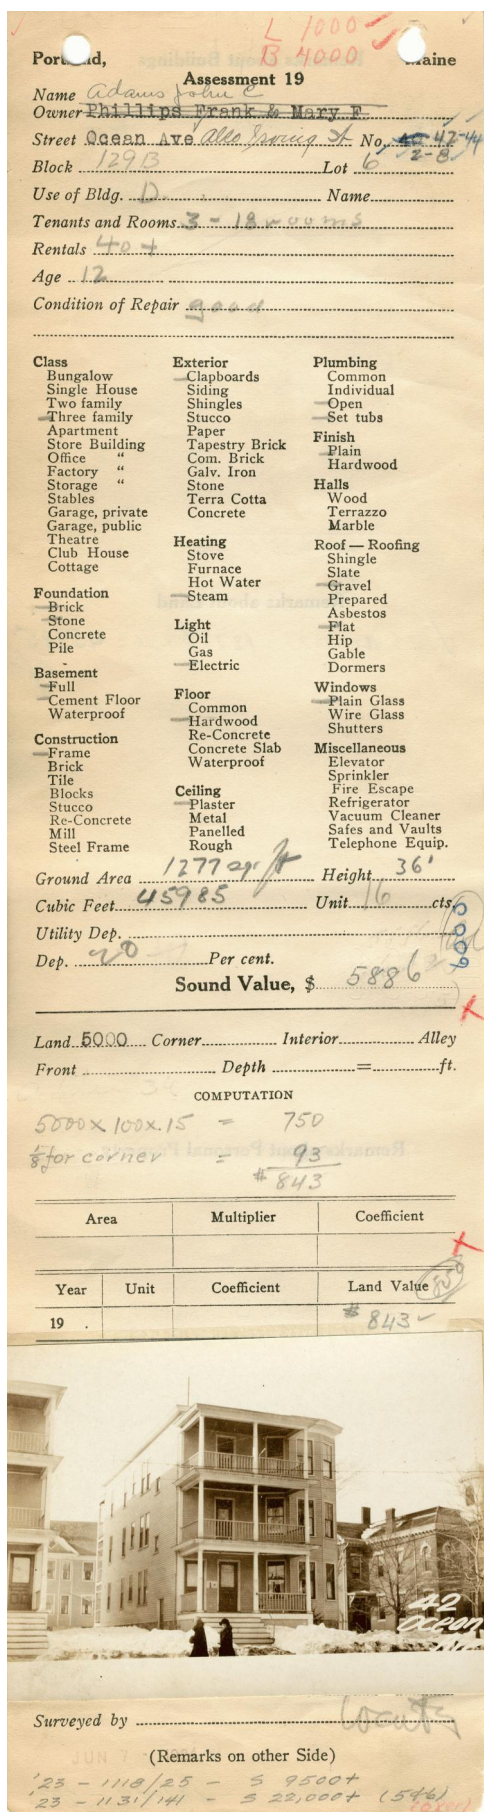 L 1000
B 4000
Portland, Maine
Assessment 19
Name Adams John C
Owner Phillips Frank & Mary F.
Street Ocean Ave also Irving St No. 42-44
2-8
Block 129B Lot 6
Use of Bldg. D. Name
Tenants and Rooms 3 - 18 rooms
Rentals 40 +
Age 12
Condition of Repair good
Class
Bungalow
Single House
Two family
Three family
Apartment
Store Building
Office "
Factory "
Storage "
Stables
Garage, private
Garage, public
Theatre
Club House
Cottage
Foundation
Brick
Stone
Concrete
Pile
Basement
Full
Cement Floor
Waterproof
Construction
Frame
Brick
Tile
Blocks
Stucco
Re-Concrete
Mill
Steel Frame
Exterior
Clapboards
Siding
Shingles
Stucco
Paper
Tapestry Brick
Com. Brick
Galv. Iron
Stone
Terra Cotta
Concrete
Heating
Stove
Furnace
Hot Water
Steam
Light
Oil
Gas
Electric
Floor
Common
Hardwood
Re-Concrete
Concrete Slab
Waterproof
Ceiling
Plaster
Metal
Panelled
Rough
Plumbing
Common
Individual
Open
Set tubs
Finish
Plain
Hardwood
Halls
Wood
Terrazzo
Marble
Roof — Roofing
Shingle
Slate
Gravel
Prepared
Asbestos
Flat
Hip
Gable
Dormers
Windows
Plain Glass
Wire Glass
Shutters
Miscellaneous
Elevator
Sprinkler
Fire Escape
Refrigerator
Vacuum Cleaner
Safes and Vaults
Telephone Equip.
Ground Area 1277 sqr ft Height 36'
Cubic Feet 45985 Unit 16 cts.
Utility Dep.
6000
Dep. 20 Per cent.
Sound Value, $ 5886
Land 5000 Corner Interior Alley
Front Depth = ft.
COMPUTATION
5000 x 100 x .15 = 750
1/8 for corner = 93
$843
Area Multiplier Coefficient
850
Year Unit Coefficient Land Value
19 . $ 843
42
Ocean
Av
Surveyed by
(Remarks on other Side)
'23 - 1118/25 - S 9500+
'23 - 1131/141 - S 22,000+ (5+6)